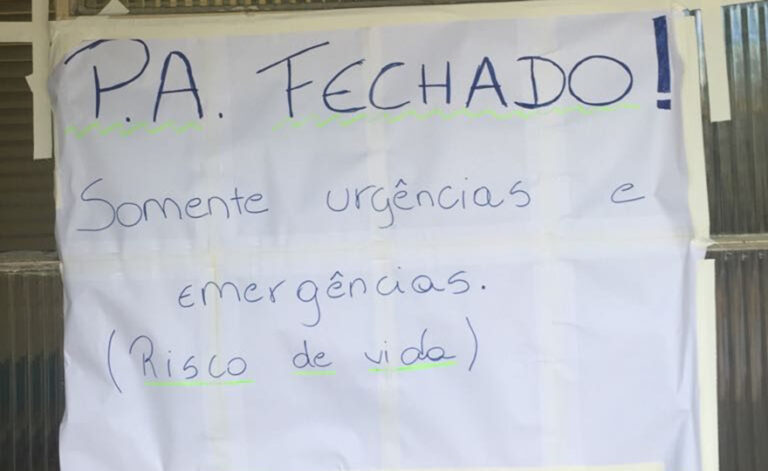 P.A. FECHADO!
Somente urgências e
emergências.
(Risco de vida)